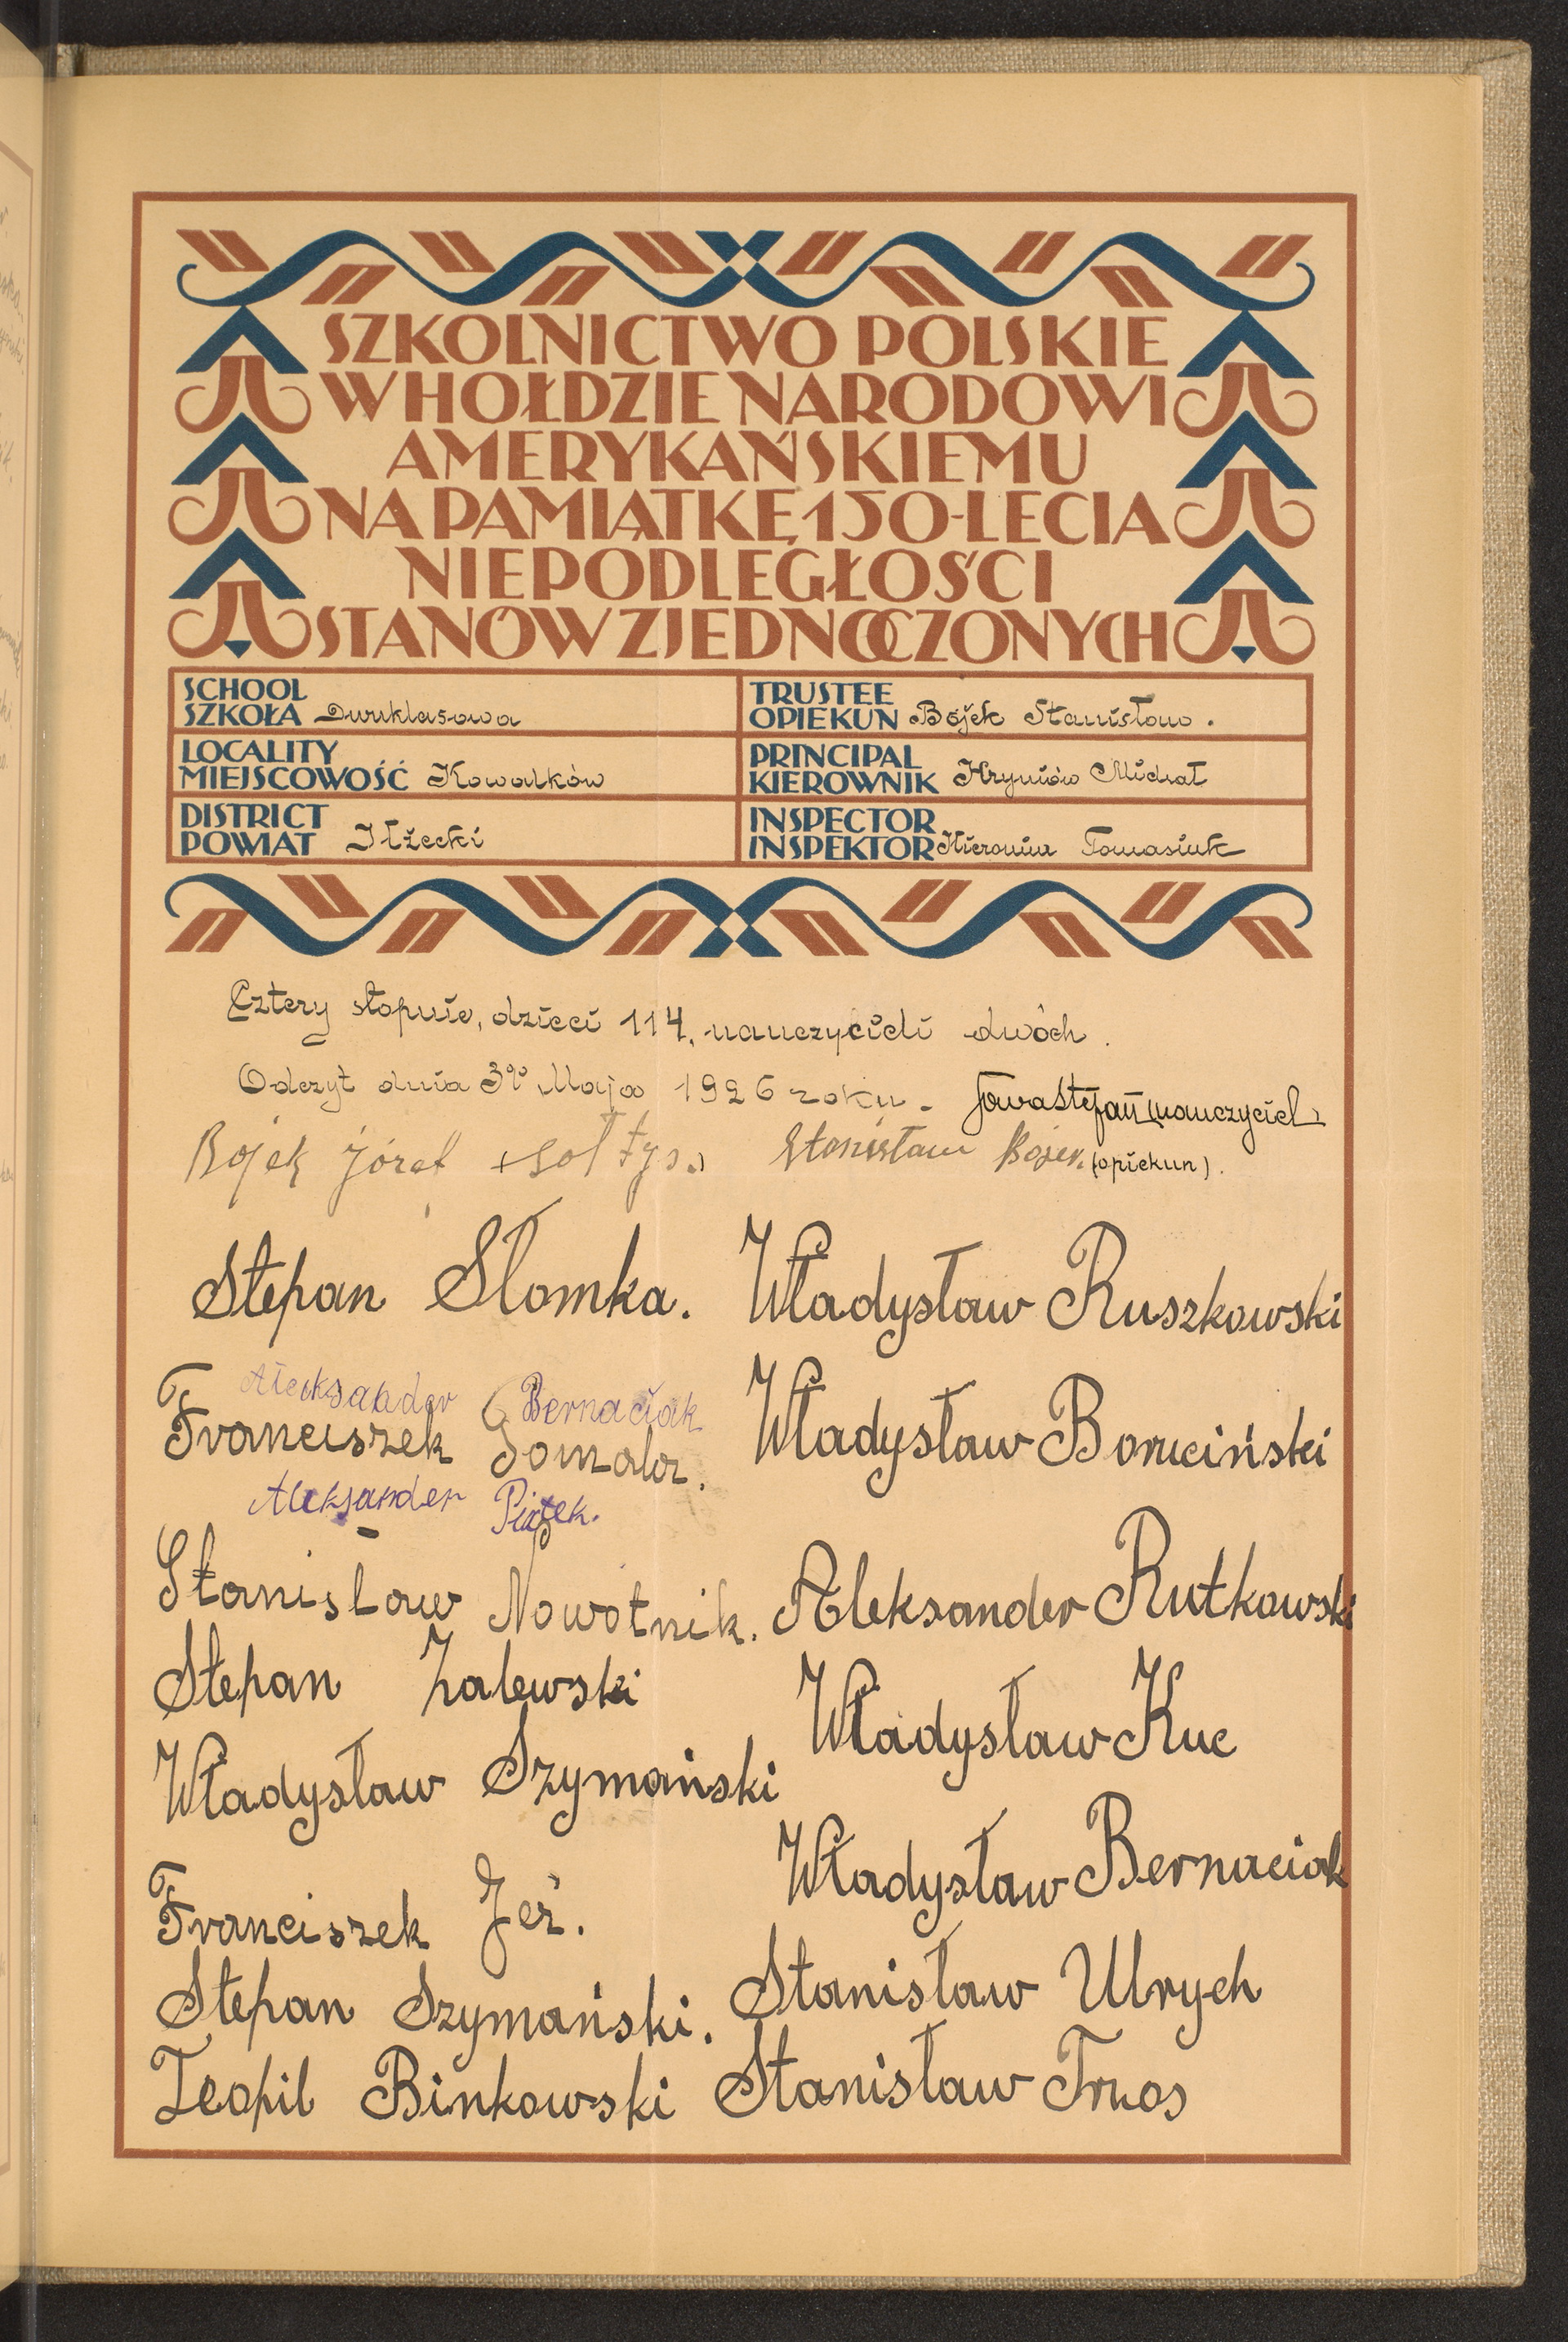 SZKOLNICTWO POLSKIE
W HOŁDZIE NARODOWI
AMERYKAŃSKIEMU
NA PAMIĄTKĘ 150-LECIA
NIEPODLEGŁOŚCI
STANÓW ZJEDNOCZONYCH
SCHOOL
SZKOŁA Dwuklasowa
TRUSTEE
OPIEKUN Bojek Stanisław.
LOCALITY
MIEJSCOWOŚĆ Kowalków
PRINCIPAL
KIEROWNIK Hryniów Michał
DISTRICT
POWIAT Iłżecki
INSPECTOR
INSPEKTOR Hieronim Tomasiuk
Cztery stopnie, dzieci 114, nauczycieli dwóch.
Odczyt dnia 3go Maja 1926 roku.
Stefan (nauczyciel)
Bojek Józef (sołtys.)
Stanisław Bojek. (opiekun).
Stepan Słomka.
Władysław Ruszkowski
Aleksander Bernaciak
Franciszek
Władysław Boruciński
Aleksander Piątek.
Stanisław Nowotnik.
Aleksander Rutkowski
Stepan Zalewski
Władysław Kuc
Władysław Szymański
Władysław Bernaciak
Franciszek Jeż.
Stanisław Ulrych
Stepan Szymański.
Teopil Binkowski
Stanisław Trzos